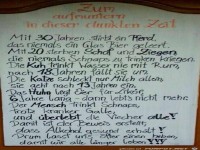 Zum
aufmuntern
in dieser dunklen Zeit
Mit 30 Jahren stirbt ein Pferd,
das niemals ein Glas Bier geleert.
Mit 20 sterben Schaf und Ziegen,
die niemals Schnaps zu trinken kriegen.
Die Kuh trinkt Wasser nie mit Rum,
nach 18 Jahren fällt sie um.
Die Katze schleckt nur Milch allein
sie geht nach 13 Jahren ein.
Das Huhn legt Eier für
6 Jahre lang, dann
Der Mensch trinkt Schnaps,
und überlebt die Viecher alle!
Damit ist der Beweis
dass Alkohol gesund erhält!
damit wir alle länger leben!!!